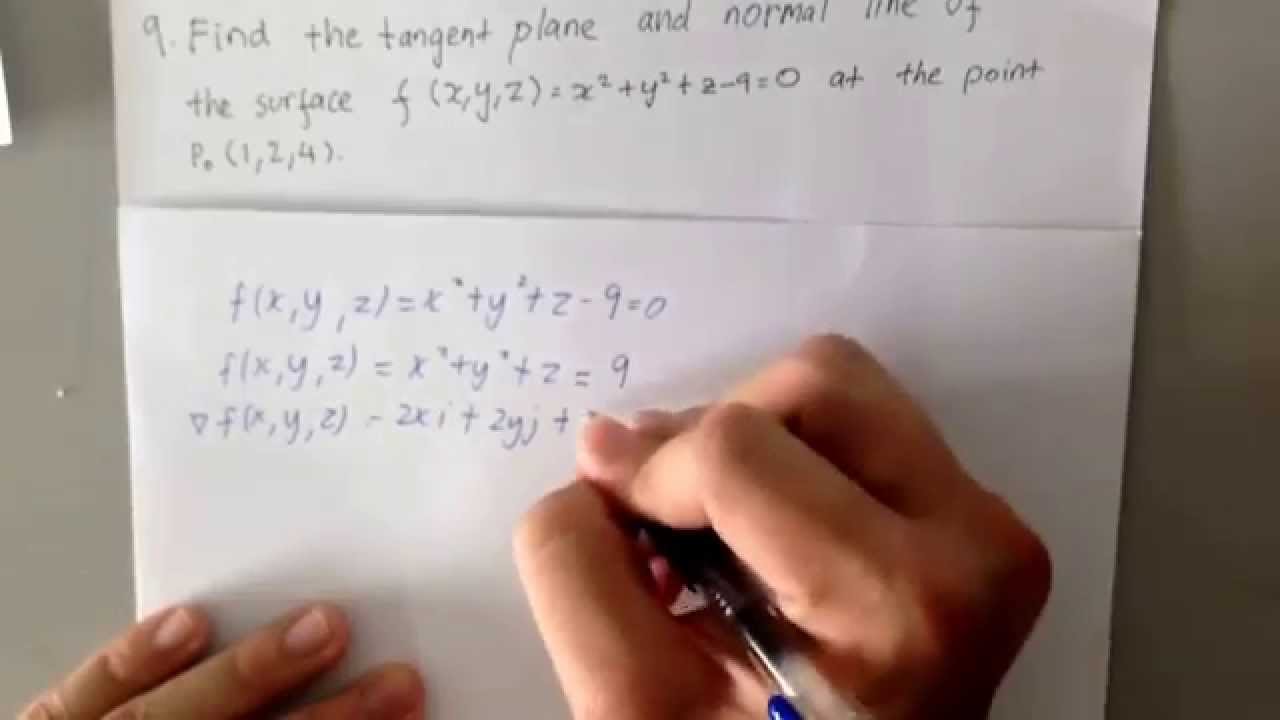 9. Find the tangent plane and normal line of
the surface f (x,y,z) = x² + y² + z - 9 = 0 at the point
P₀ (1,2,4).
f(x,y,z) = x² + y² + z - 9 = 0
f(x,y,z) = x² + y² + z = 9
∇ f(x,y,z) = 2xi + 2yj +